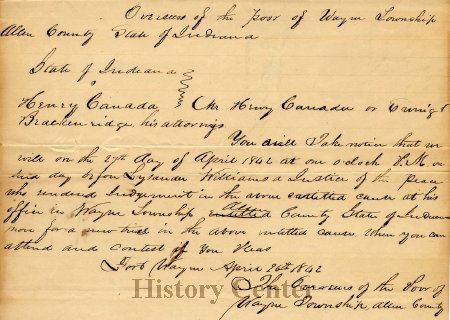 Overseers of the Poor of Wayne Township
Allen County State of Indiana
State of Indiana
Henry Canada, Mr Henry Canada or
Brackenridge, his attorneys
You will Take notice that we
will on the 27th day of April 1842 at one o clock P.M. on
said day before Williams a Justice of the peace
who rendered Judgement in the above entitled cause at his
office in Wayne Township Allen County State of Indiana
move for a new trial in the above intitled cause when you can
attend and contest if you Pleas
Fort Wayne April 26th 1842
The Overseers of the Poor of
Wayne Township, Allen County
History Center